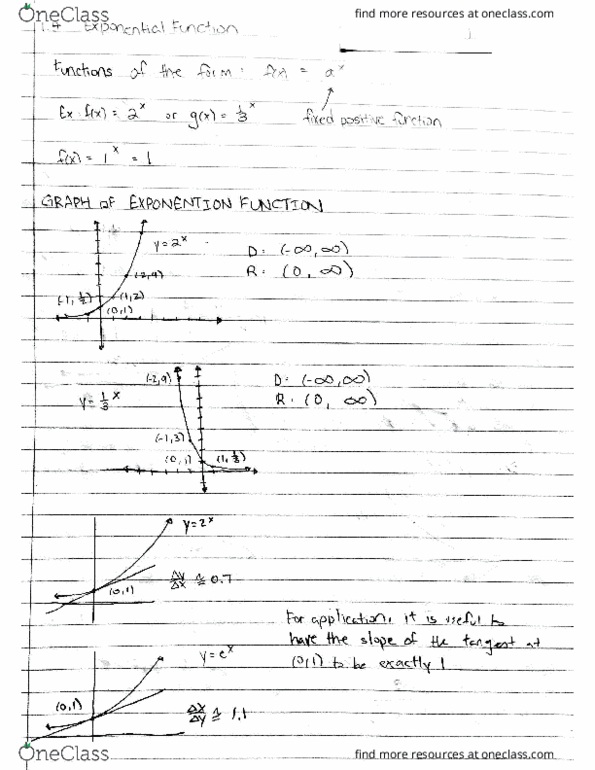 OneClass
find more resources at oneclass.com
1.4 Exponential Function
Functions of the form: f(x) = a^x
Ex: f(x) = 2^x or g(x) = 1/3^x
fixed positive function
f(x) = 1^x = 1
GRAPH OF EXPONENTION FUNCTION
y = 2^x
D: (-∞, ∞)
R: (0, ∞)
(-1, 1/2)
(1,2)
(0,1)
(-2,9)
D: (-∞, ∞)
R: (0, ∞)
y = 1/3^x
(-1,3)
(0,1)
(1, 1/3)
y = 2^x
(0,1)
Δy/Δx ≈ 0.7
For application, it is useful to
have the slope of the tangest at
(0,1) to be exactly 1
y = e^x
(0,1)
Δx/Δy ≈ 1.1
OneClass
find more resources at oneclass.com